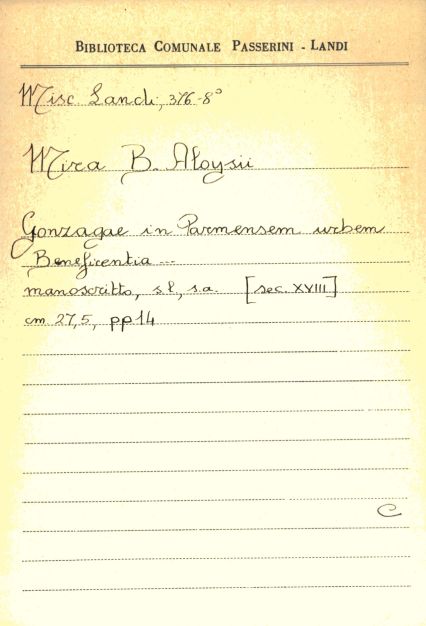 BIBLIOTECA COMUNALE PASSERINI - LANDI
Misc. Landi, 376-8°
Mira B. Aloysii
Gonzagae in Parmensem urbem
Beneficentia ---
manoscritto, s.l, s.a. [sec. XVIII]
cm 27,5, pp 14
C